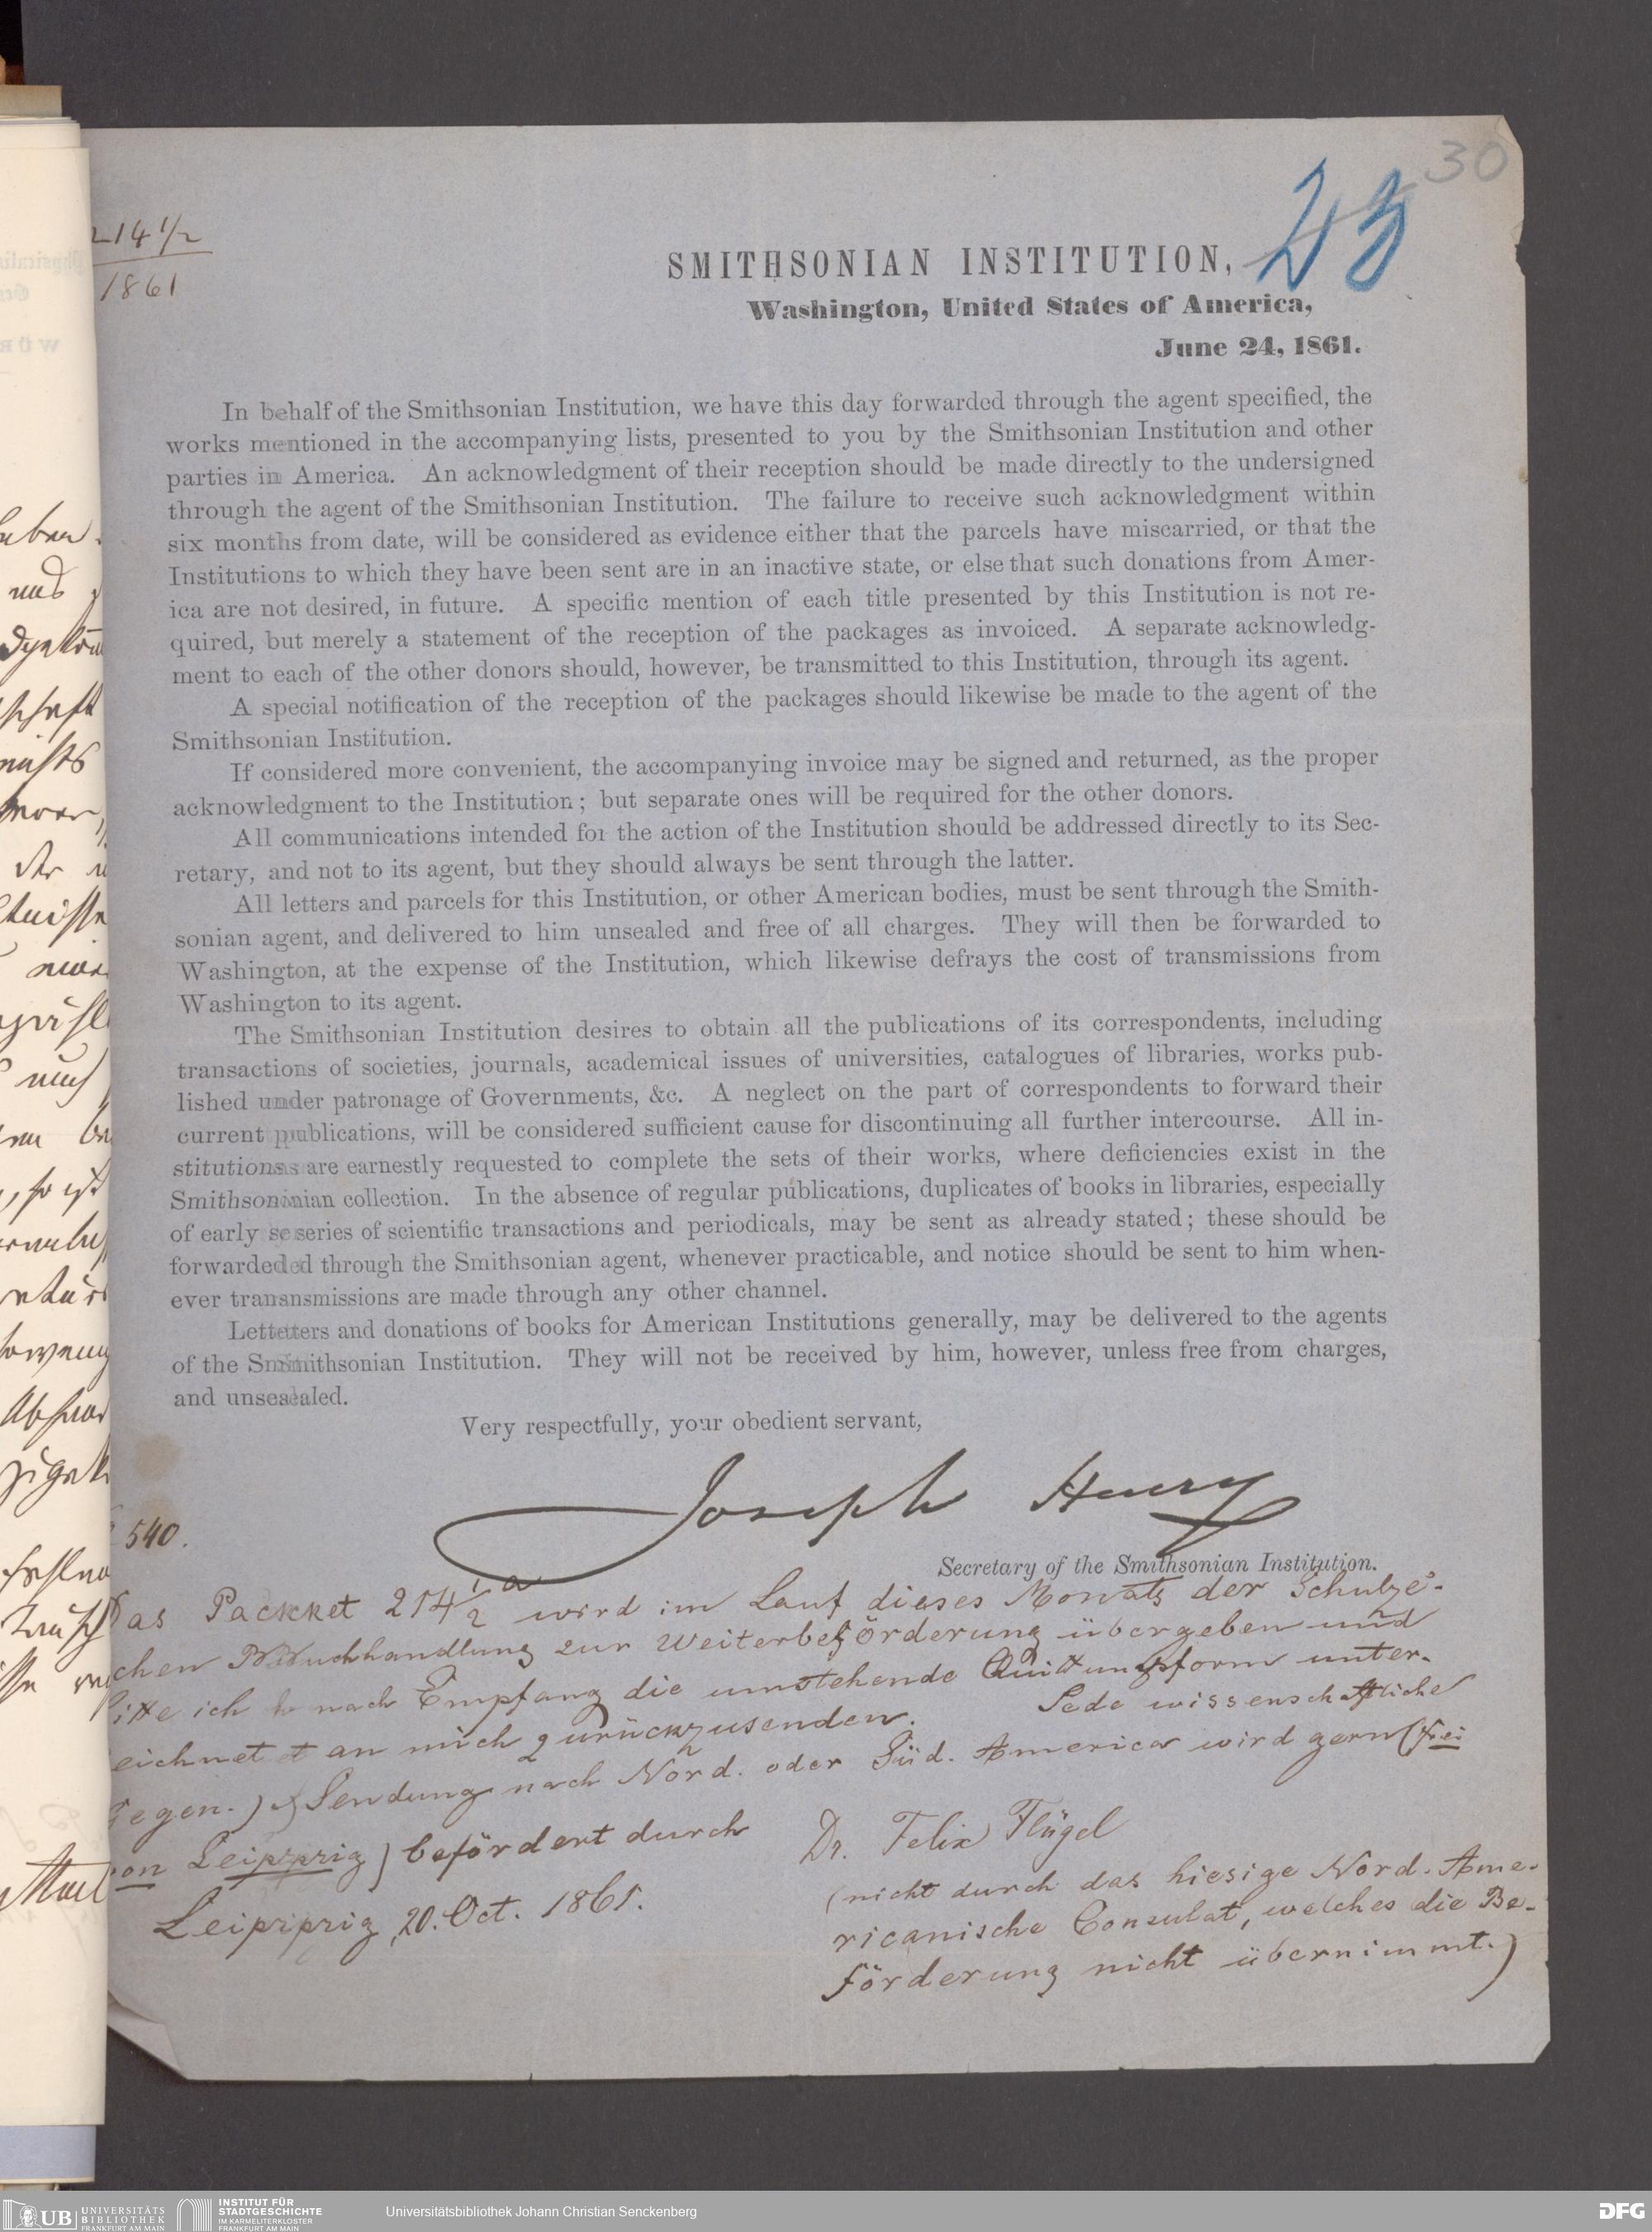 30
23
214 1/2
1861
SMITHSONIAN INSTITUTION,
Washington, United States of America,
June 24, 1861.
In behalf of the Smithsonian Institution, we have this day forwarded through the agent specified, the
works mentioned in the accompanying lists, presented to you by the Smithsonian Institution and other
parties in America. An acknowledgment of their reception should be made directly to the undersigned
through the agent of the Smithsonian Institution. The failure to receive such acknowledgment within
six months from date, will be considered as evidence either that the parcels have miscarried, or that the
Institutions to which they have been sent are in an inactive state, or else that such donations from Amer-
ica are not desired, in future. A specific mention of each title presented by this Institution is not re-
quired, but merely a statement of the reception of the packages as invoiced. A separate acknowledg-
ment to each of the other donors should, however, be transmitted to this Institution, through its agent.
A special notification of the reception of the packages should likewise be made to the agent of the
Smithsonian Institution.
If considered more convenient, the accompanying invoice may be signed and returned, as the proper
acknowledgment to the Institution; but separate ones will be required for the other donors.
All communications intended for the action of the Institution should be addressed directly to its Sec-
retary, and not to its agent, but they should always be sent through the latter.
All letters and parcels for this Institution, or other American bodies, must be sent through the Smith-
sonian agent, and delivered to him unsealed and free of all charges. They will then be forwarded to
Washington, at the expense of the Institution, which likewise defrays the cost of transmissions from
Washington to its agent.
The Smithsonian Institution desires to obtain all the publications of its correspondents, including
transactions of societies, journals, academical issues of universities, catalogues of libraries, works pub-
lished under patronage of Governments, &c. A neglect on the part of correspondents to forward their
current publications, will be considered sufficient cause for discontinuing all further intercourse. All in-
stitutions are earnestly requested to complete the sets of their works, where deficiencies exist in the
Smithsonian collection. In the absence of regular publications, duplicates of books in libraries, especially
of early series of scientific transactions and periodicals, may be sent as already stated; these should be
forwarded through the Smithsonian agent, whenever practicable, and notice should be sent to him when-
ever transmissions are made through any other channel.
Letters and donations of books for American Institutions generally, may be delivered to the agents
of the Smithsonian Institution. They will not be received by him, however, unless free from charges,
and unsealed.
Very respectfully, your obedient servant,
Joseph Henry
Secretary of the Smithsonian Institution.
540.
Das Packet 214 1/2 a wird im Lauf dieses Monats der Schulze'-
chen Buchhandlung zur Weiterbeförderung übergeben und
bitte ich nach Empfang die umstehende Quittungsform unter-
zeichnet an mich zurückzusenden. Jede wissenschaftliche
Gegen.) Sendung nach Nord. oder Süd. America wird gern (frei
von Leipzig) befördert durch
Dr. Felix Flügel
Leipzig, 20. Oct. 1861.
(nicht durch das hiesige Nord-Ame-
ricanische Consulat, welches die Be-
förderung nicht übernimmt.)
UB UNIVERSITÄTS
BIBLIOTHEK
FRANKFURT AM MAIN
INSTITUT FÜR
STADTGESCHICHTE
IM KARMELITERKLOSTER
FRANKFURT AM MAIN
Universitätsbibliothek Johann Christian Senckenberg
DFG